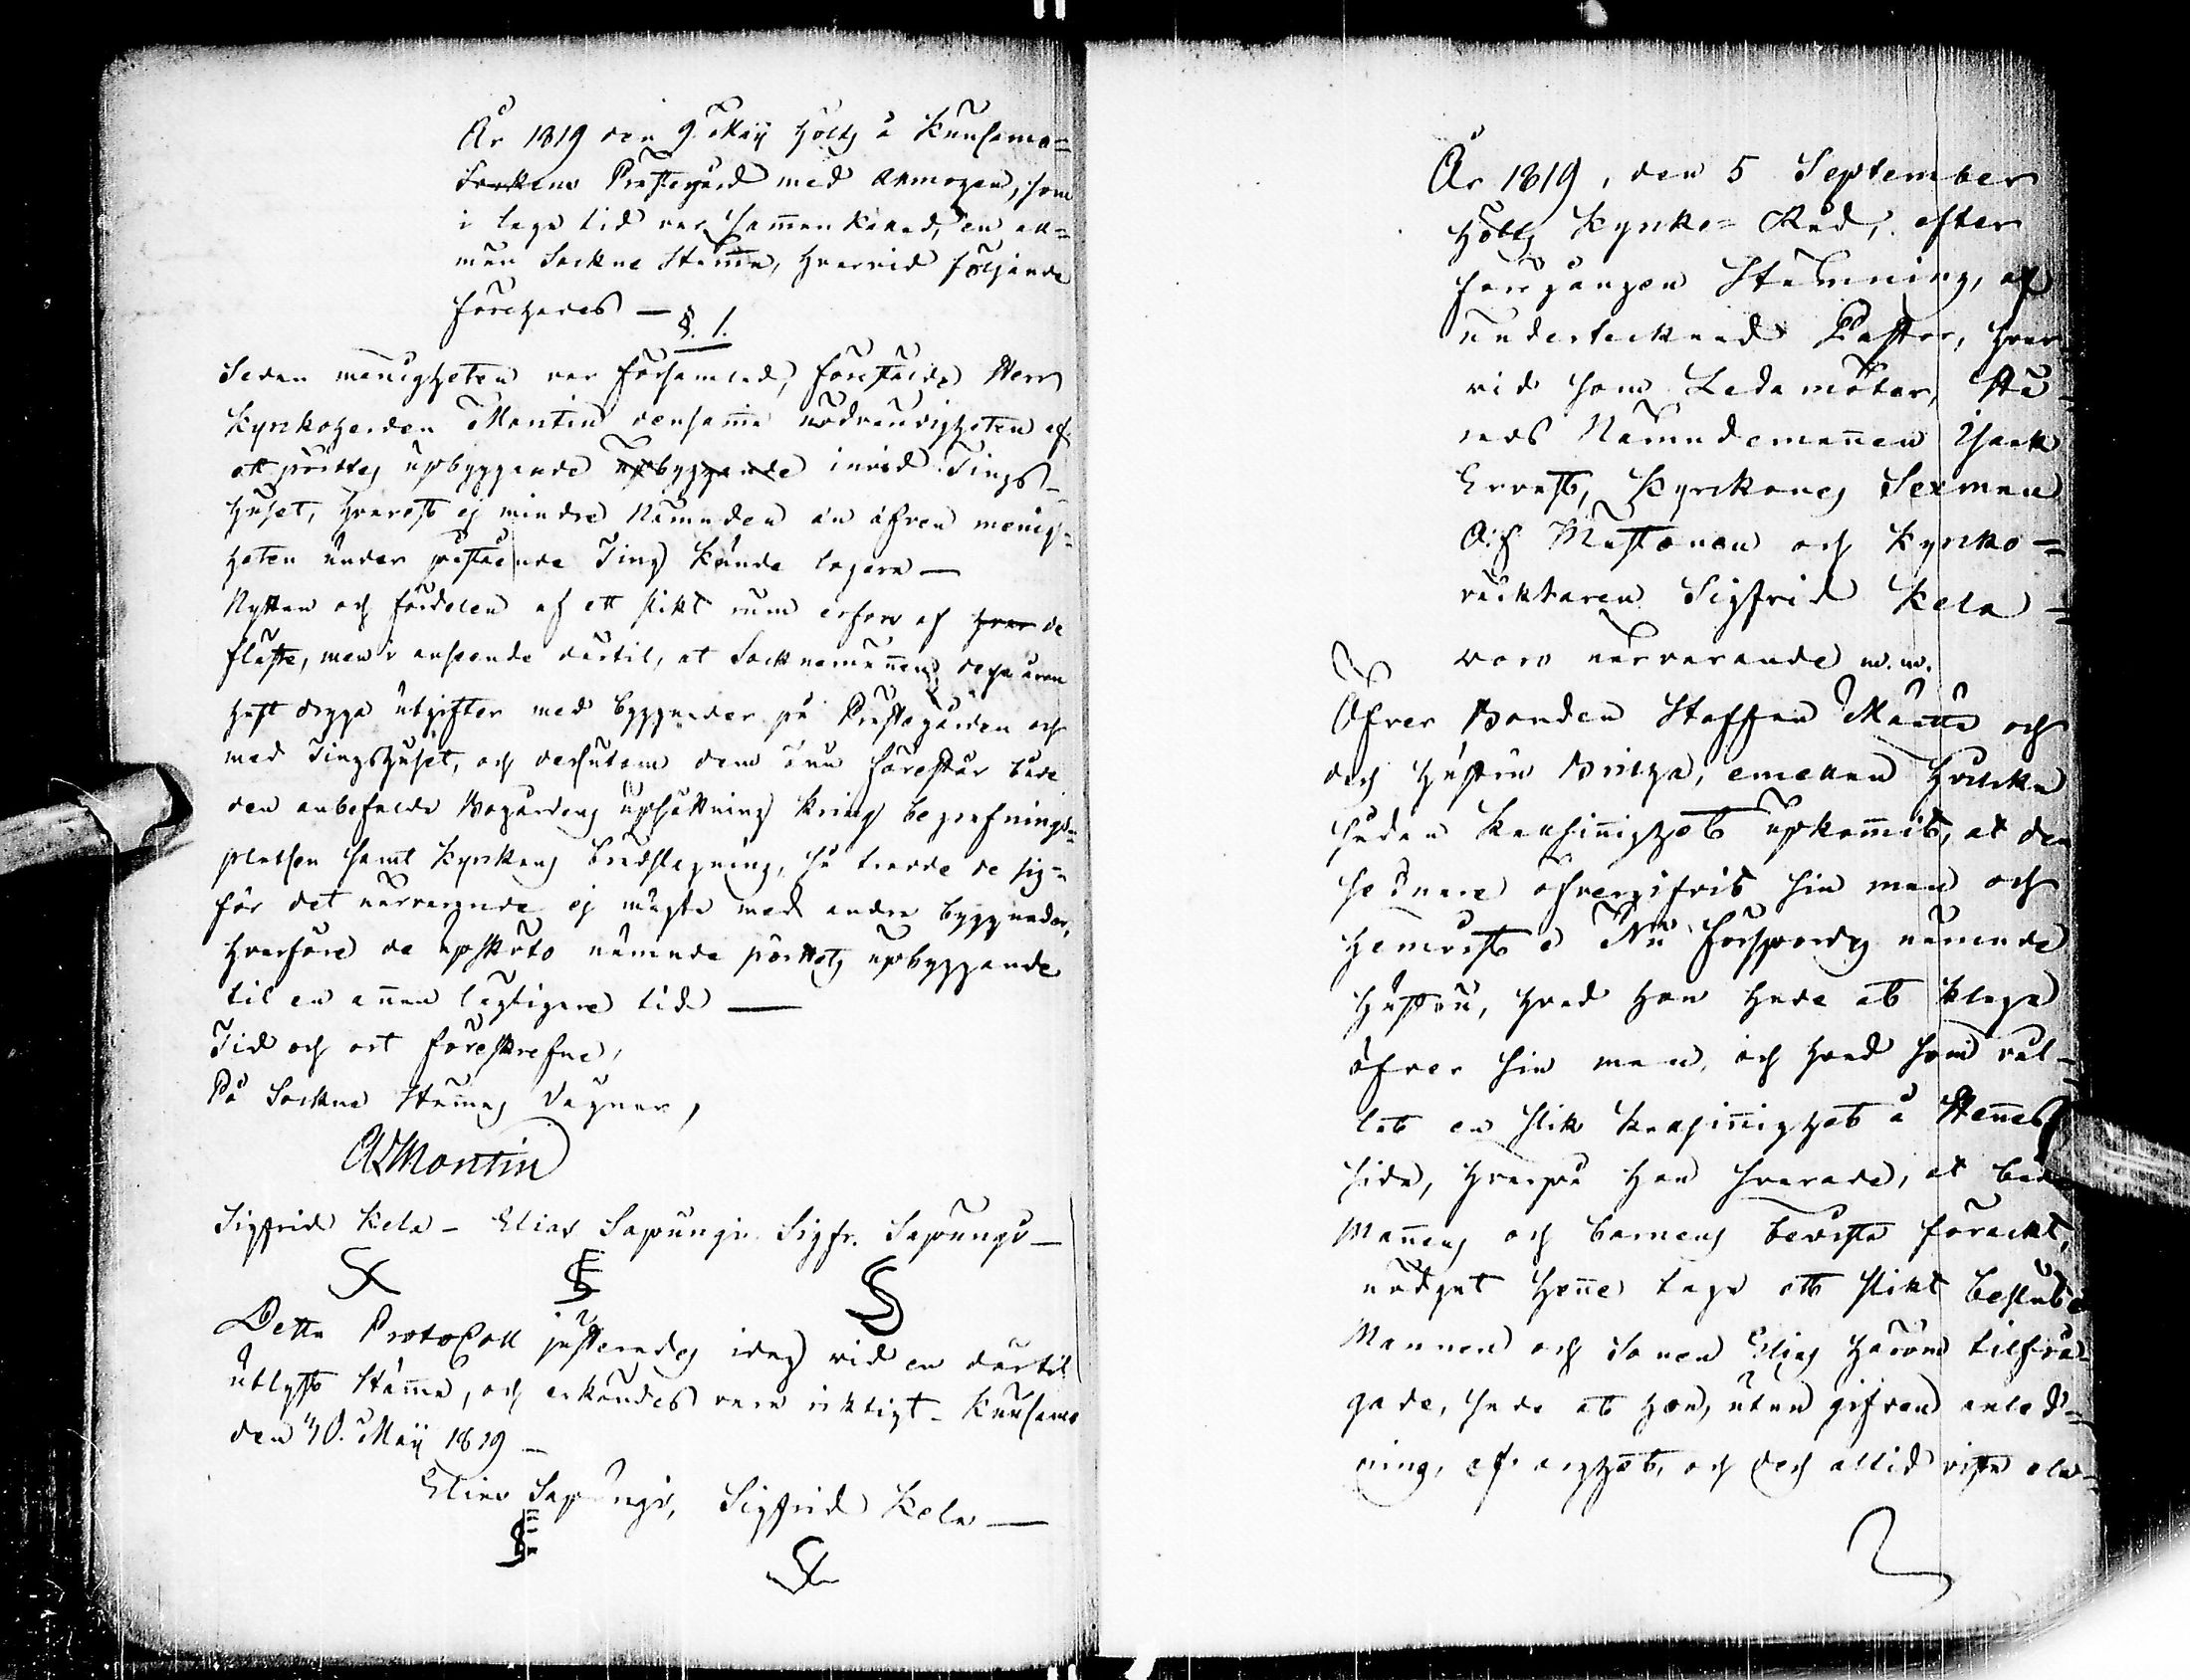 År 1819 den 9. Maij höltz å Kuusamo=
Sockens Prestegård med Allmogen, som
i laga tid var sammankallad, en all=
män Sockne Stämma, hvarvid följande
förehades —
§. 1.
Sedan menigheten var församlad, förestälde Herr
Kyrkoherden Montin densamme nödvändigheten af
ett pörttes upbyggande upbyggande invid Tings-
huset, hvarest ej mindre Nämnden än äfven menig=
heten under påstående Ting kunde logera —
Nyttan och fördelen af ett slikt rum erfors af hvar de
fläste, men i anseende därtil, at Socknemännen dessa åren
haft dryga utgifter med byggnader på Prestegården och
med Tingshuset, och dessutom dem ännu förestår både
den anbefalde Bogårdens upsättning kring begrafnings=
platsen samt Kyrkans brädslagning, så trodde de sig=
för det närvarande ej mägta med andra byggnader,
hvarföre de upskuto nämnde pörttets upbyggande
til en annan lägligare tid —
Tid och ort föreskrefne,
På Sockne Stämmans vägnar,
A Montin
Sigfrid Kela – Elias Sapungi. Sigfr. Sapungi —
Detta Protocoll justerades idag vid en därtil
utlyst Stämma, och erkändes vara riktigt – Kuusamo
den 30. Maij 1819 –
Elias Sapungi, Sigfrid Kela —
År 1819, den 5 September
höltz Kyrko= Råd, efter
föregången Stämning, af
undertecknad Pastor, hvar
vid som Ledamöter, Hä=
rads Nämndemannen Isaak
Ervast, Kyrkones Sexman
Ol: Mustonen och Kyrko=
väktaren Sigfrid Kela =
voro närvarande m.m.
Öfver Bonden Staffan Määttä och
des hustru Brita, emellan hvilka
sådan kallsinnighet upkommit, at den
sednare öfvergifvit sin man och
hemvist. Nu försporde nämnde
hustru, hvad hon hade at klaga
öfver sin man, och hvad som vål=
lat en slik kallsinnighet å Hennes
sida, hvarpå hon svarade, at både
Mannens och barnens beviste förackt,
nödgat henne taga ett slikt beslut.
Mannen och Sonen Elias härom tilfrå=
gade, sade at hon, utan gifven anled=
ning, af arghet, och des altid viste ela=